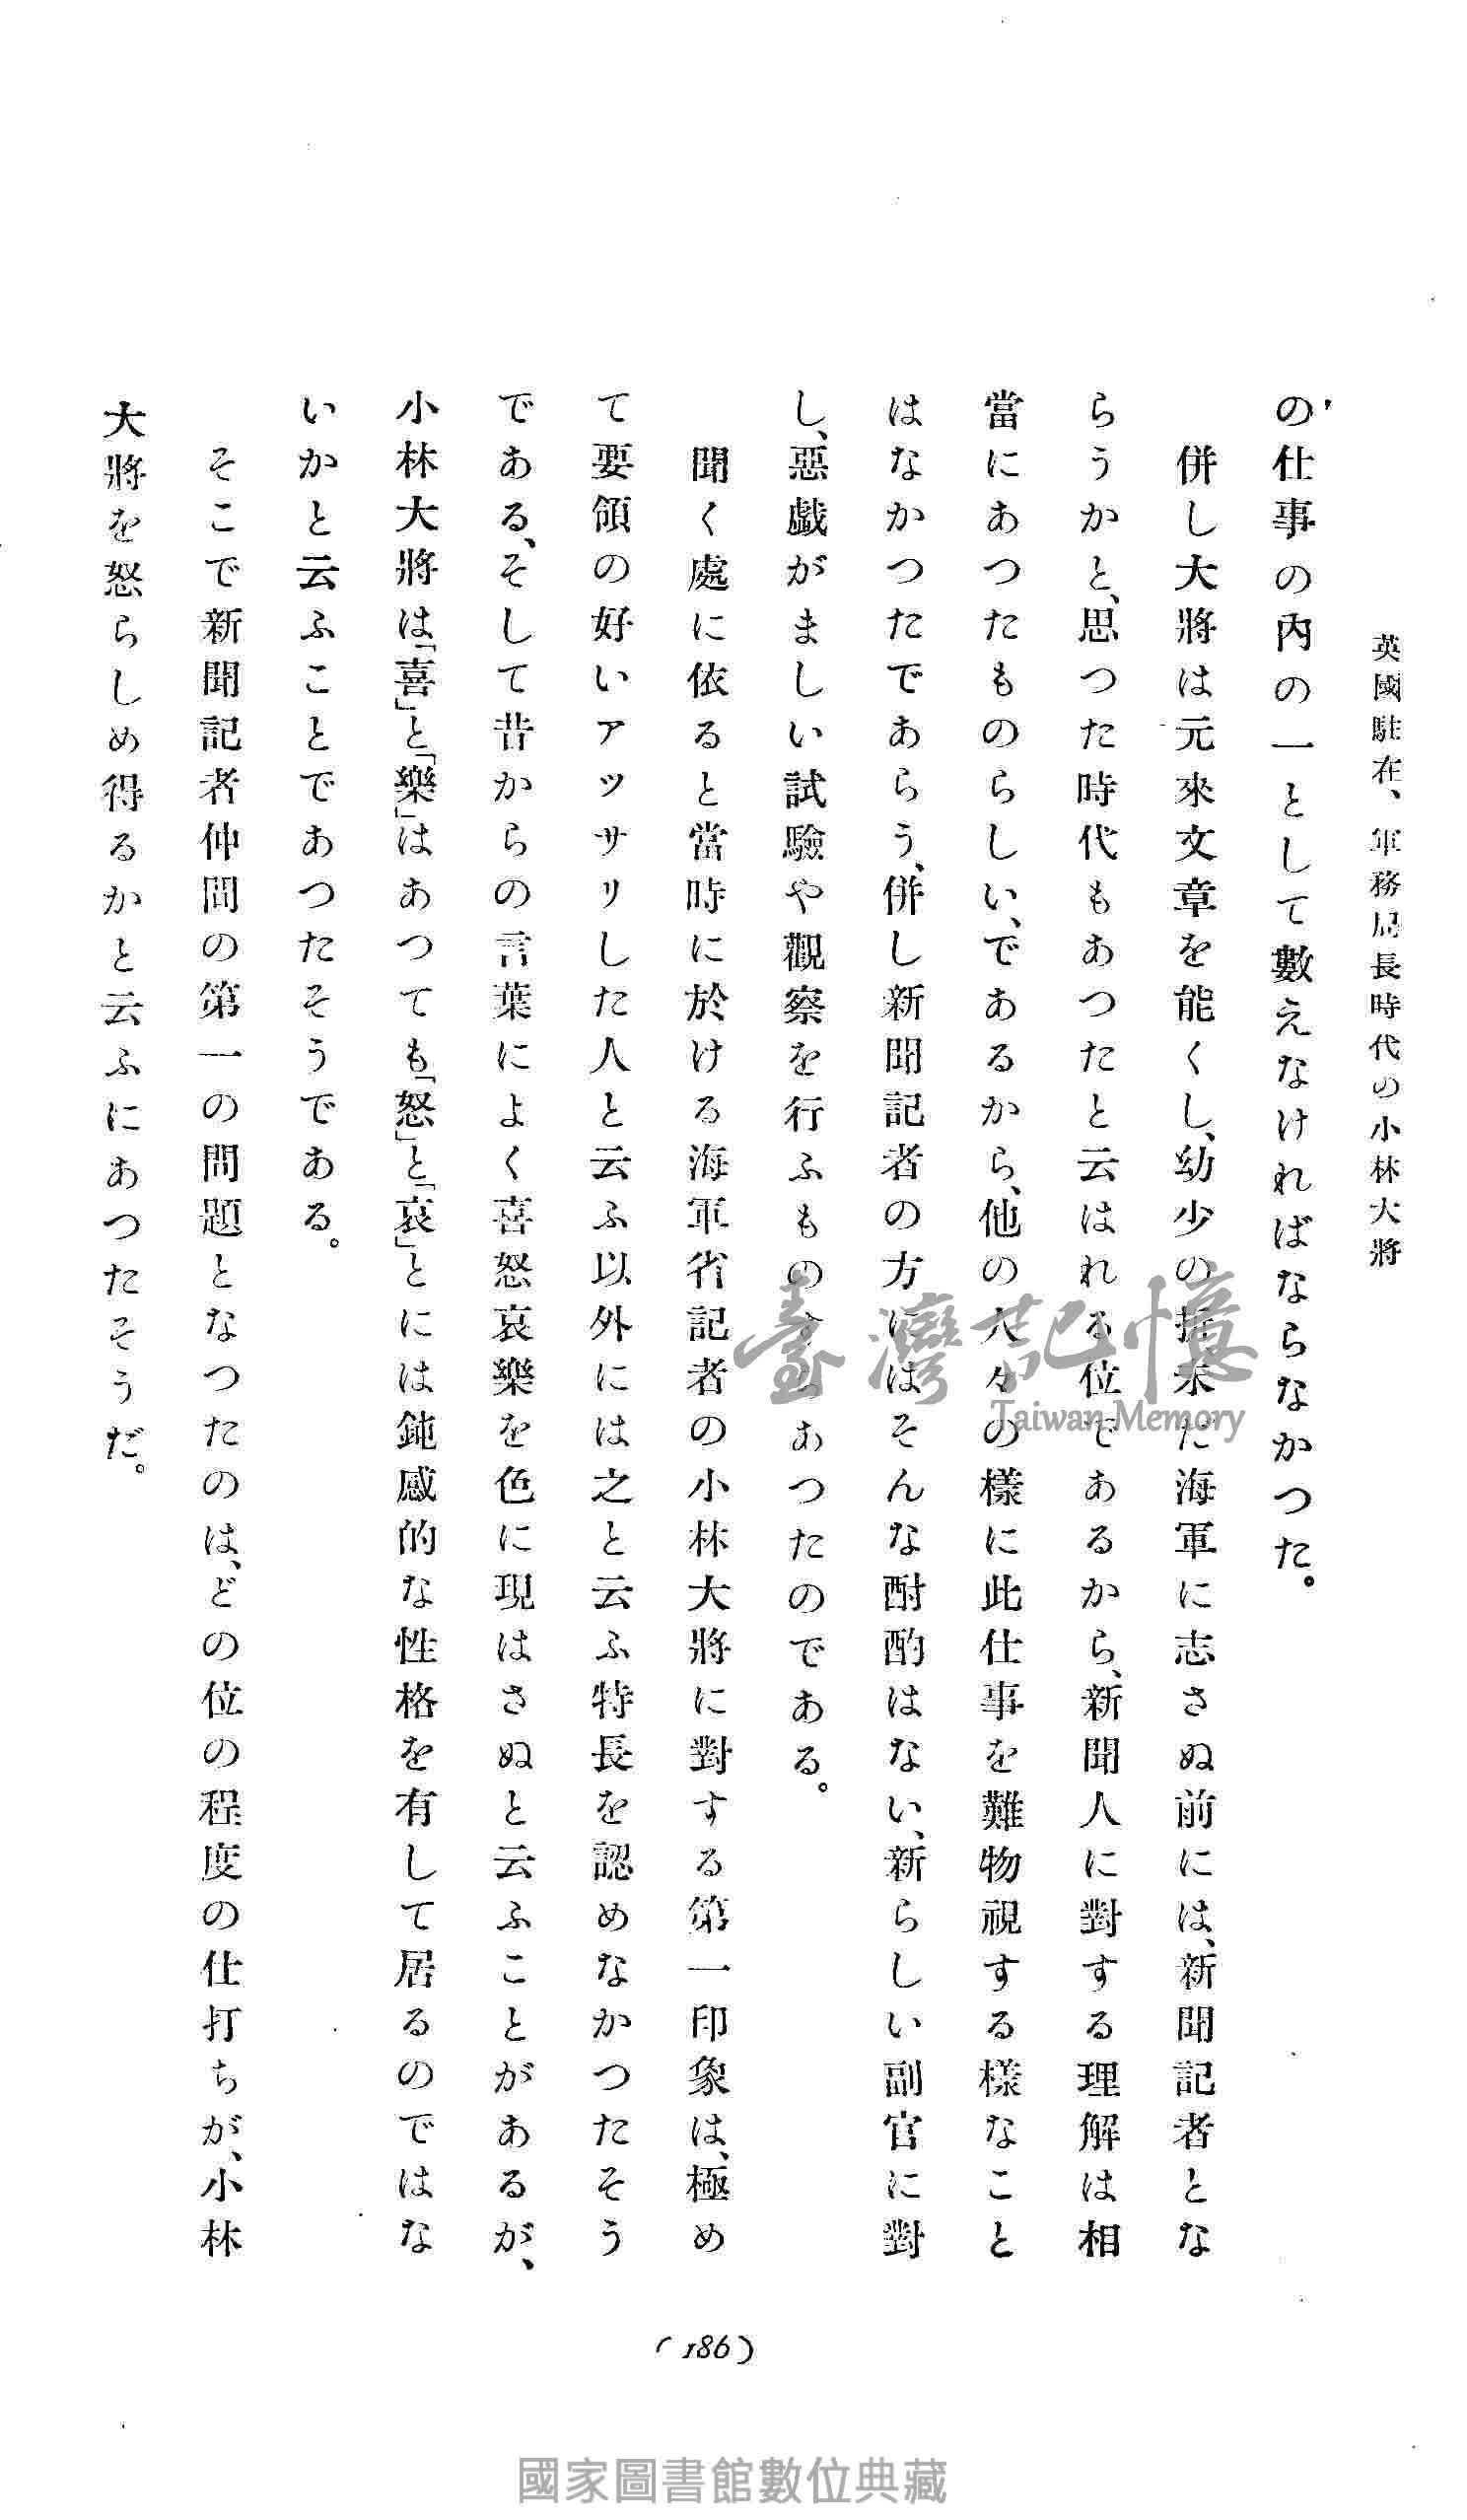 英國駐在、軍務局長時代の小林大將
の仕事の內の一として數えなければならなかつた。
併し大將は元來文章を能くし、幼少の折未だ海軍に志さぬ前には、新聞記者とな
らうかと、思つた時代もあつたと云はれる位であるから、新聞人に對する理解は相
當にあつたものらしい、であるから、他の人々の樣に此仕事を難物視する樣なこと
はなかつたであらう、併し新聞記者の方にはそんな酎酌はない、新らしい副官に對
し、惡戯がましい試驗や觀察を行ふものすらあつたのである。
聞く處に依ると當時に於ける海軍省記者の小林大將に對する第一印象は、極め
て要領の好いアッサリした人と云ふ以外には之と云ふ特長を認めなかつたそう
である、そして昔からの言葉によく喜怒哀樂を色に現はさぬと云ふことがあるが、
小林大將は、「喜」と「樂」はあつても「怒」と「哀」とには鈍感的な性格を有して居るのではな
いかと云ふことであつたそうである。
そこで新聞記者仲間の第一の問題となつたのは、どの位の程度の仕打ちが、小林
大將を怒らしめ得るかと云ふにあつたそうだ。
(186)
臺灣記憶
Taiwan Memory
國家圖書館數位典藏